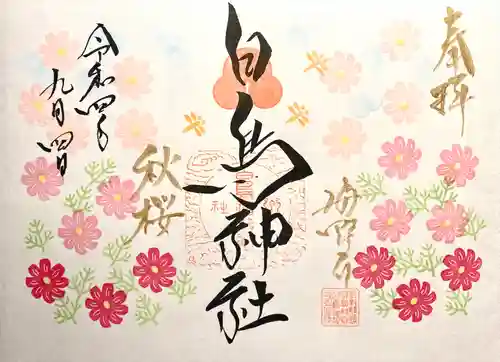 奉拝
海野平
白鳥神社
秋桜
令和四年
九月四日